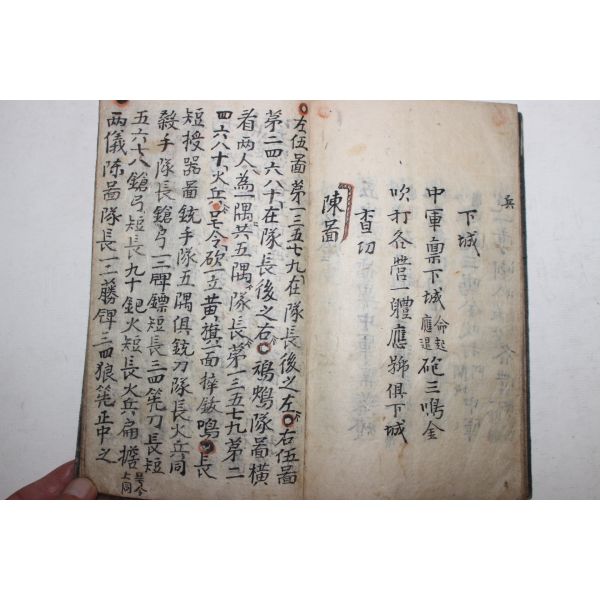 下城
中軍稟下城 命起 應退 砲三鳴金
吹打各營一體應號俱下城
查功
陳圖
左伍圖第一三五七九在隊長後之左 右伍圖
第二四六八十在隊長後之右 鴻鴂隊圖橫
看兩人為一隅共五隅隊長第一三五七九第二
四六八十火兵呈令砍一立黃旗一面摔鈸鳴 長
短授器圖銃手隊五隅俱銃刀隊長火兵同
殺手隊長鎗弓一二牌鏢短長三四筅刀長短
五六七八鎗弓短長九十鈀火短長火兵扁擔
號令上同
兩儀陳圖隊長一二藤牌三四狼筅正中之
兵